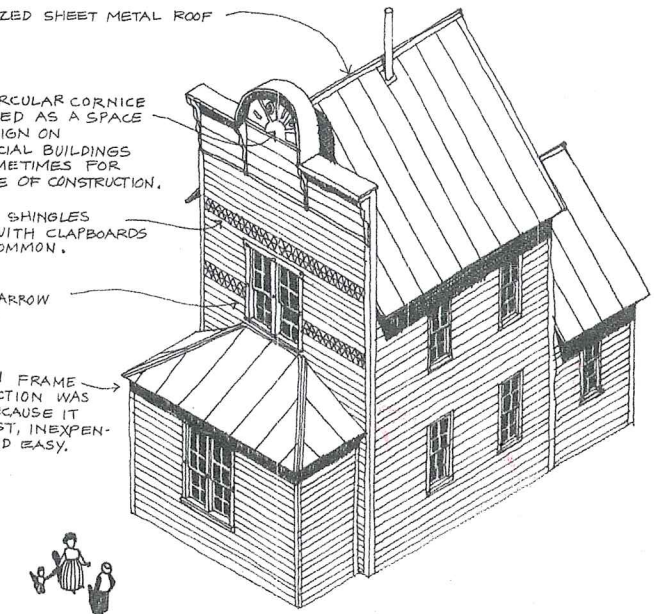 ZED SHEET METAL ROOF
RCULAR CORNICE
ED AS A SPACE
IGN ON
CIAL BUILDINGS
METIMES FOR
E OF CONSTRUCTION.
SHINGLES
WITH CLAPBOARDS
OMMON.
ARROW
FRAME
CTION WAS
CAUSE IT
ST, INEXPEN-
D EASY.